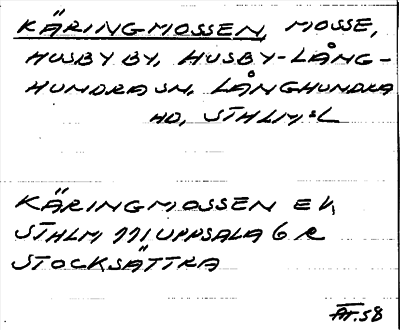 KÄRINGMOSSEN, MOSSE,
HUSBY BY, HUSBY-LÅNG-
HUNDRA SN, LÅNGHUNDRA
HD, STHLM:L
KÄRINGMOSSEN EK,
STHLM 111 UPPSALA 6 R
STOCKSÄTTRA
ÅT.58